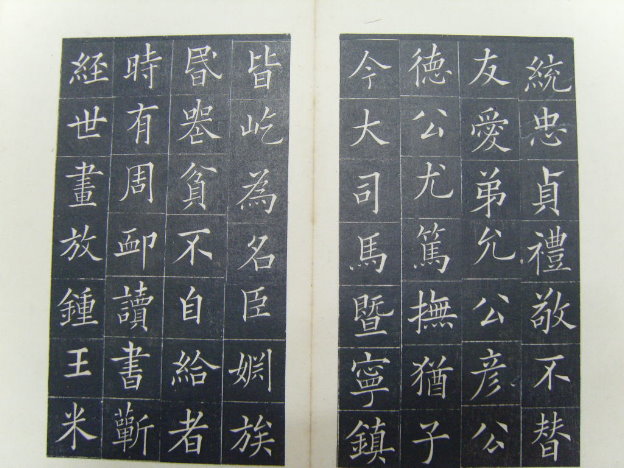 統忠貞禮敬不替
友愛弟允公彦公
德公尤篤撫猶子
今大司馬暨寧鎮
皆屹為名臣婣族
昬貧不自給者
時有周卹讀書蘄
經世畫放鍾王米